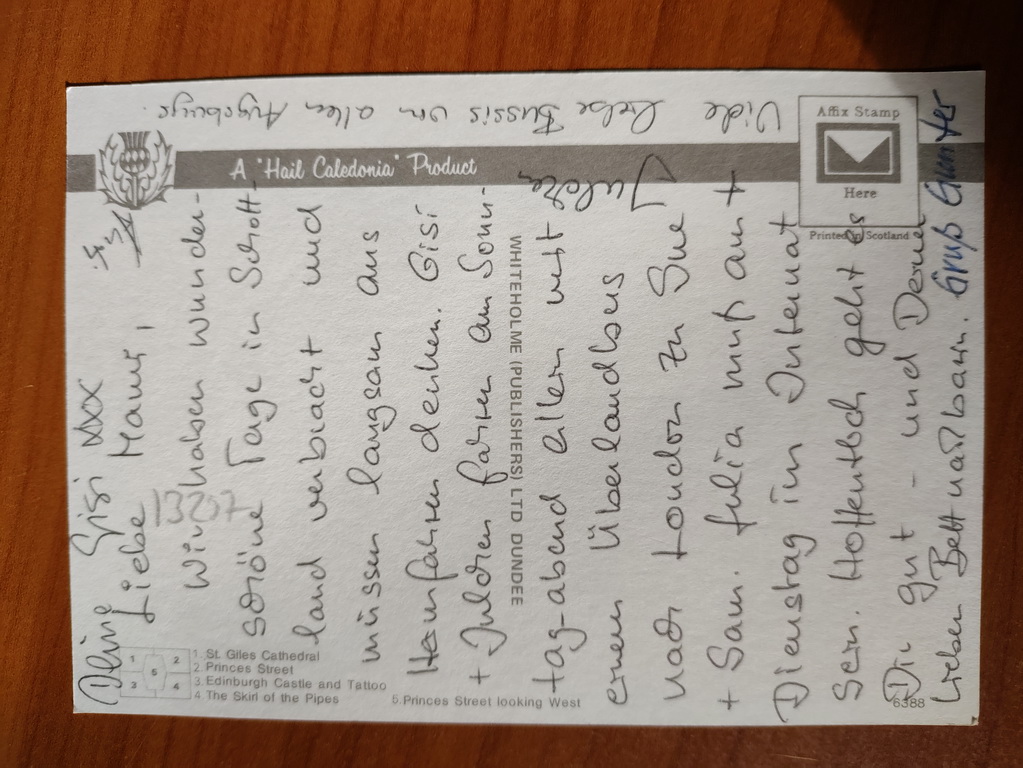 Liebe Mami,
Wir haben wunder-
schöne Tage in Schott-
land verbracht und
müssen langsam ans
Heimfahren denken. Gisi
+ Julchen fahren am Sonn-
tag-abend allein mit
einem Überlandbus
nach London zu Sue
+ Sam. Julia muß am +
Dienstag in Internat
sein. Hoffentlich geht es
Dir gut - und Deinen
lieben Bettnachbarin. Gruß Gunter
Deine Gisi XXX
Julchen
Viele liebe Bussis von allen
13207
A "Hail Caledonia" Product
Affix Stamp
Here
Printed in Scotland
WHITEHOLME (PUBLISHERS) LTD DUNDEE
1 2
5
3 4
1. St. Giles Cathedral
2. Princes Street
3. Edinburgh Castle and Tattoo
4. The Skirl of the Pipes
5. Princes Street looking West
6388